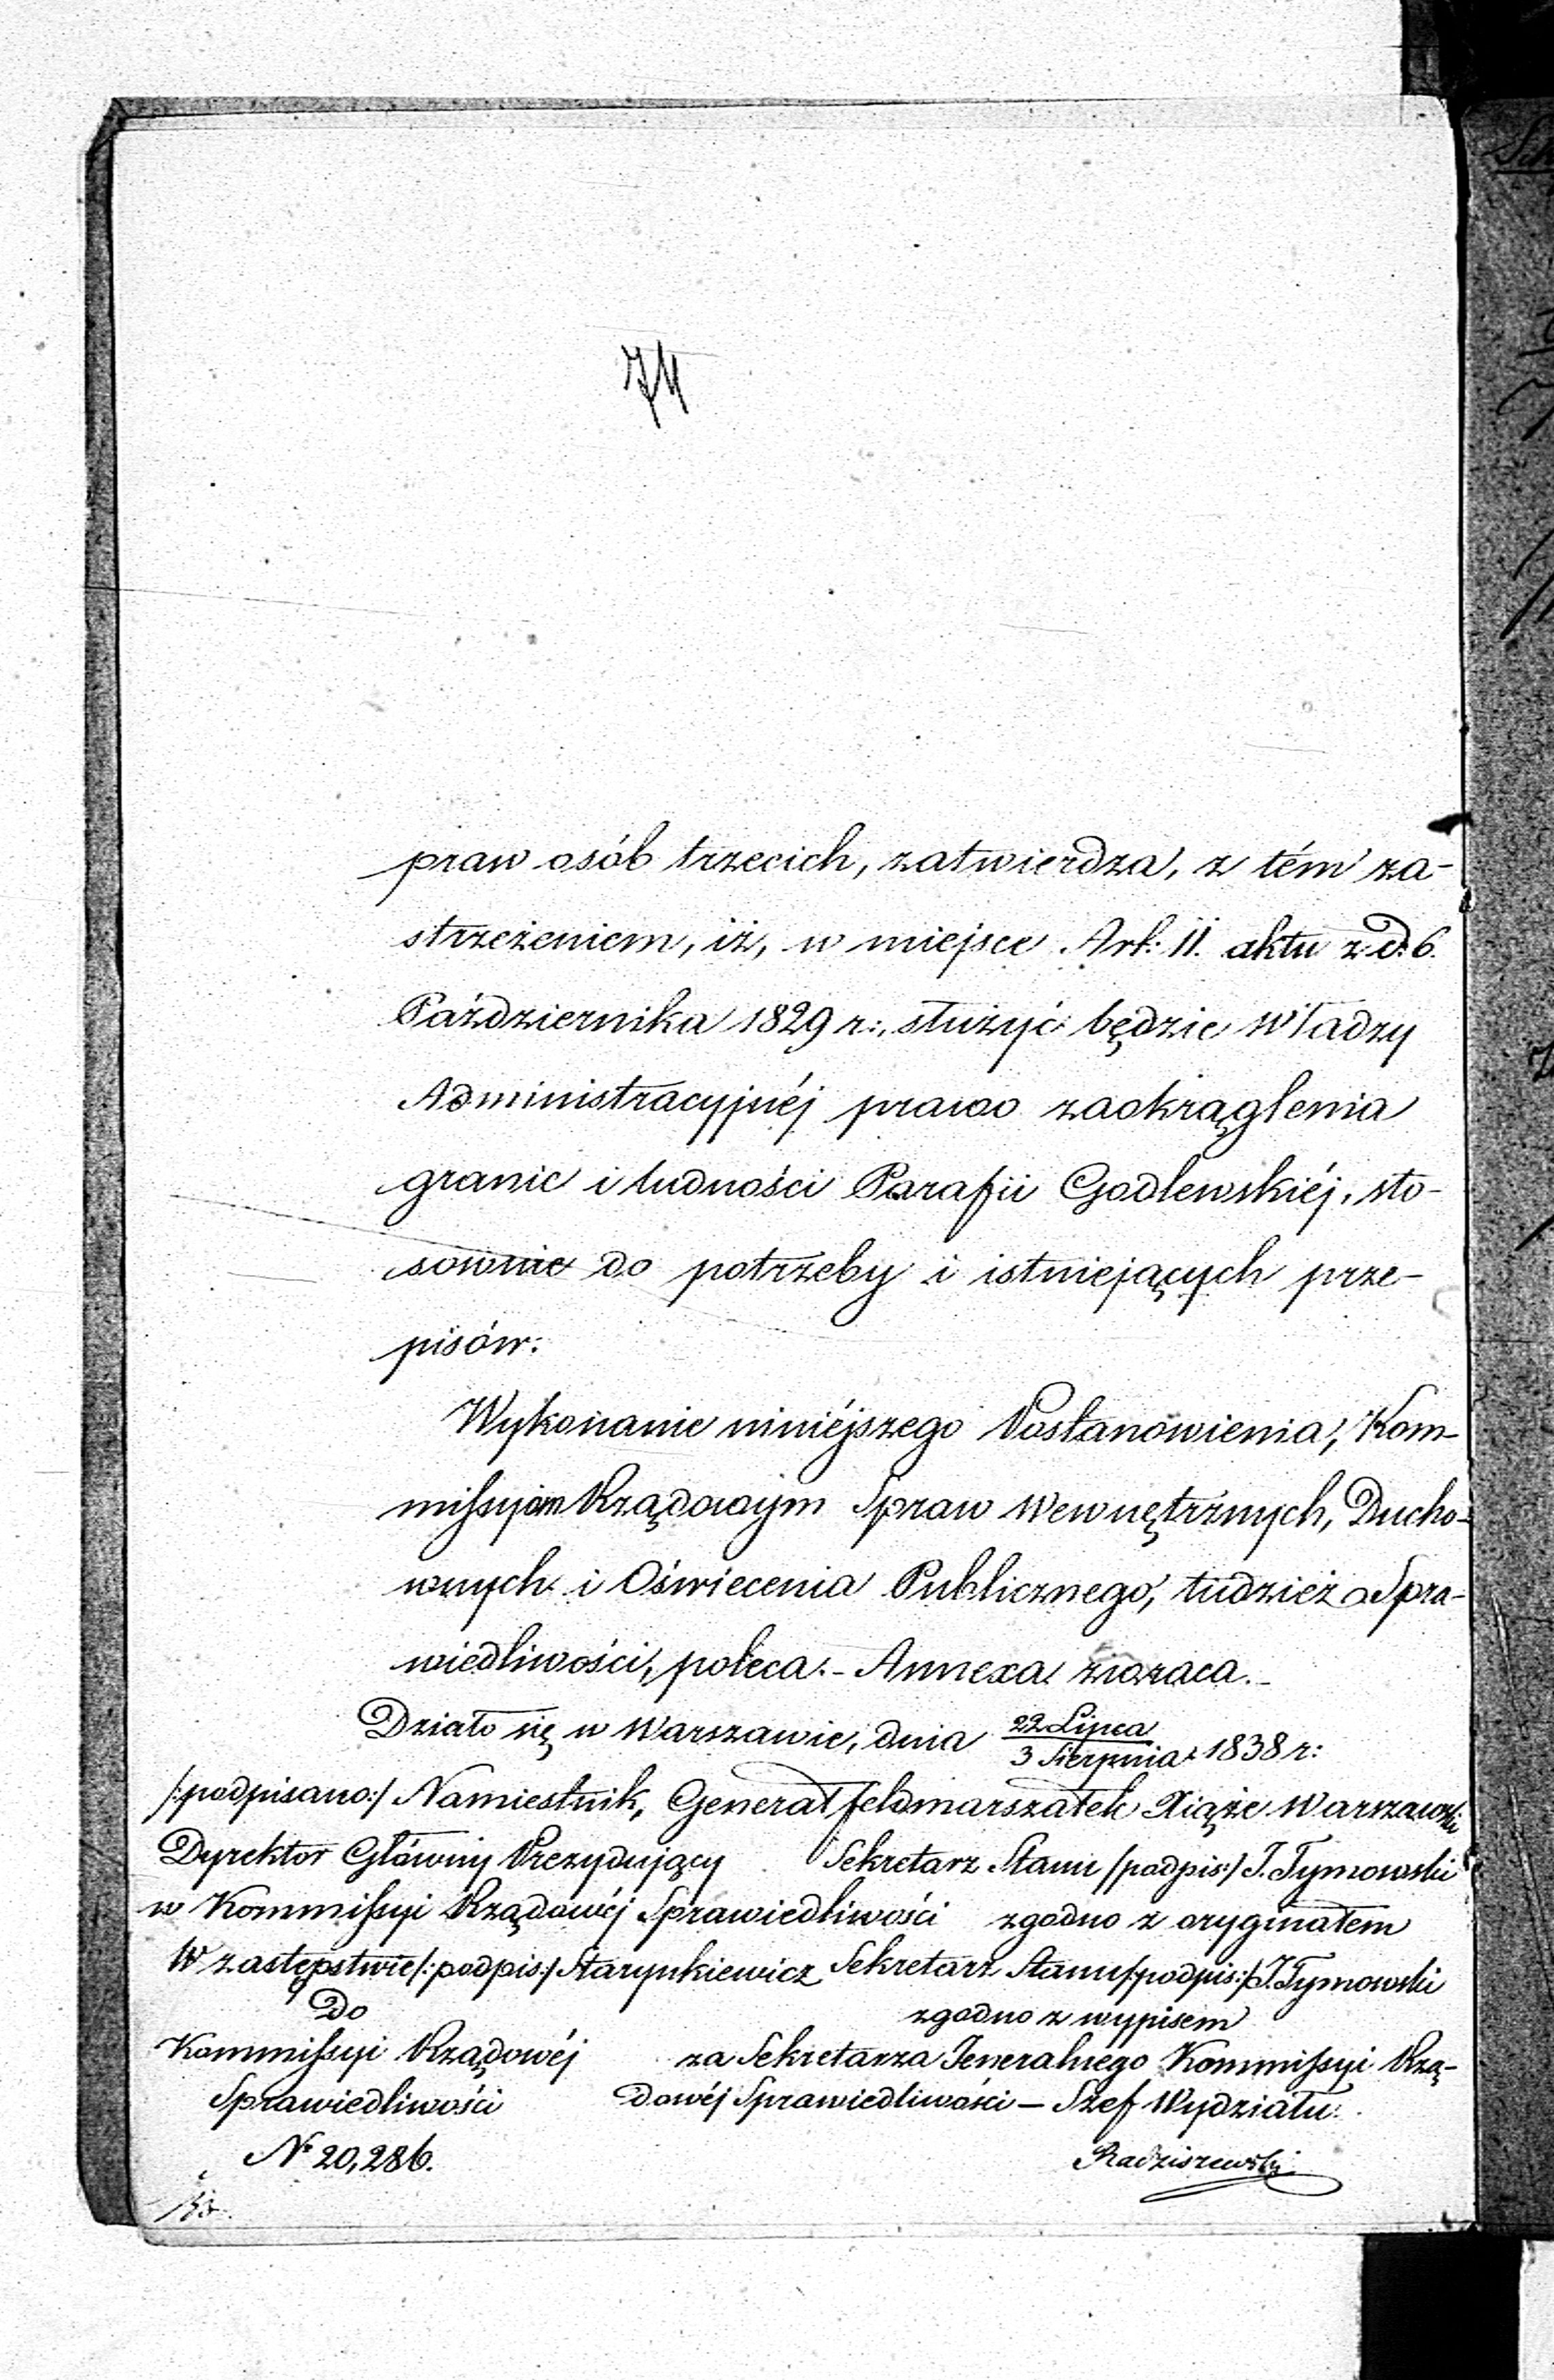 74
praw osób trzecich, zatwierdza, z tém za-
strzeżeniem, iż, w miejsce Art: 11. aktu z d. 6.
Października 1829 r:, służyć będzie Władzy
Administracyjnéj prawo zaokrąglenia
granic i ludności Parafii Godlewskiéj, sto-
sownie do potrzeby i istniejących prze-
pisów:
Wykonanie niniéjszego Postanowienia, Kom-
missyom Rządowym Spraw Wewnętrznych, Ducho-
wnych i Oświecenia Publicznego, tudzież Spra-
wiedliwości, poleca.- Annexa zwraca.-
Działo się w Warszawie, dnia 22 Lipca / 3 Sierpnia 1838 r:
/:podpisano:/ Namiestnik, Generał feldmarszałek Xiąże Warszawski
Dyrektor Główny Prezydujący Sekretarz Stanu /podpis:/ J. Tymowski
w Kommissyi Rządowéj Sprawiedliwości zgodno z oryginałem
W zastępstwie /:podpis:/ Starynkiewicz Sekretarz Stanu /podpis:/ J. Tymowski
Do zgodno z wypisem
Kommissyi Rządowéj za Sekretarza Jeneralnego Kommissyi Rzą-
Sprawiedliwości dowéj Sprawiedliwości – Szef Wydziału:
Nº 20,286. Radziszewski